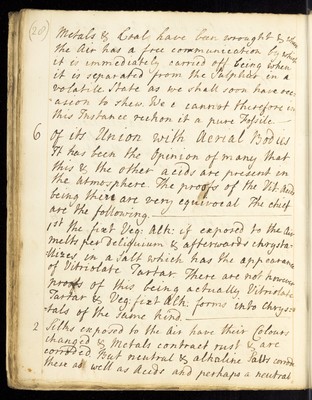 (20)
Metals & Coal have been wrought & when
the Air has a free communication by which
it is immediately carried off being when
it is separated from the Sulphur in a
volatile State as we shall soon have occ
asion to shew. We cannot therefore in
this Instance reckon it a pure Fossile
6 of its Union with Aerial Bodies
It has been the Opinion of many that
this & the other acids are present in
the Atmosphere. The proofs of the Vit: Acid
being there are very equivocal The chief
are the following
1st the fixt Veg: Alk: if exposed to the Air
melts per Deliquium & afterwards chrysta-
llizes in a Salt which has the appearance
of Vitriolate Tartar There are not however
proofs of this being actually Vitriolate
Tartar & Veg: fixt Alk: forms into Chrys-
tals of the same kind.
2 Silks exposed to the Air have their Colours
changed & Metals contract rust & are
corroded But neutral & alkaline Salts corrode
these as well as Acids and perhaps a neutral